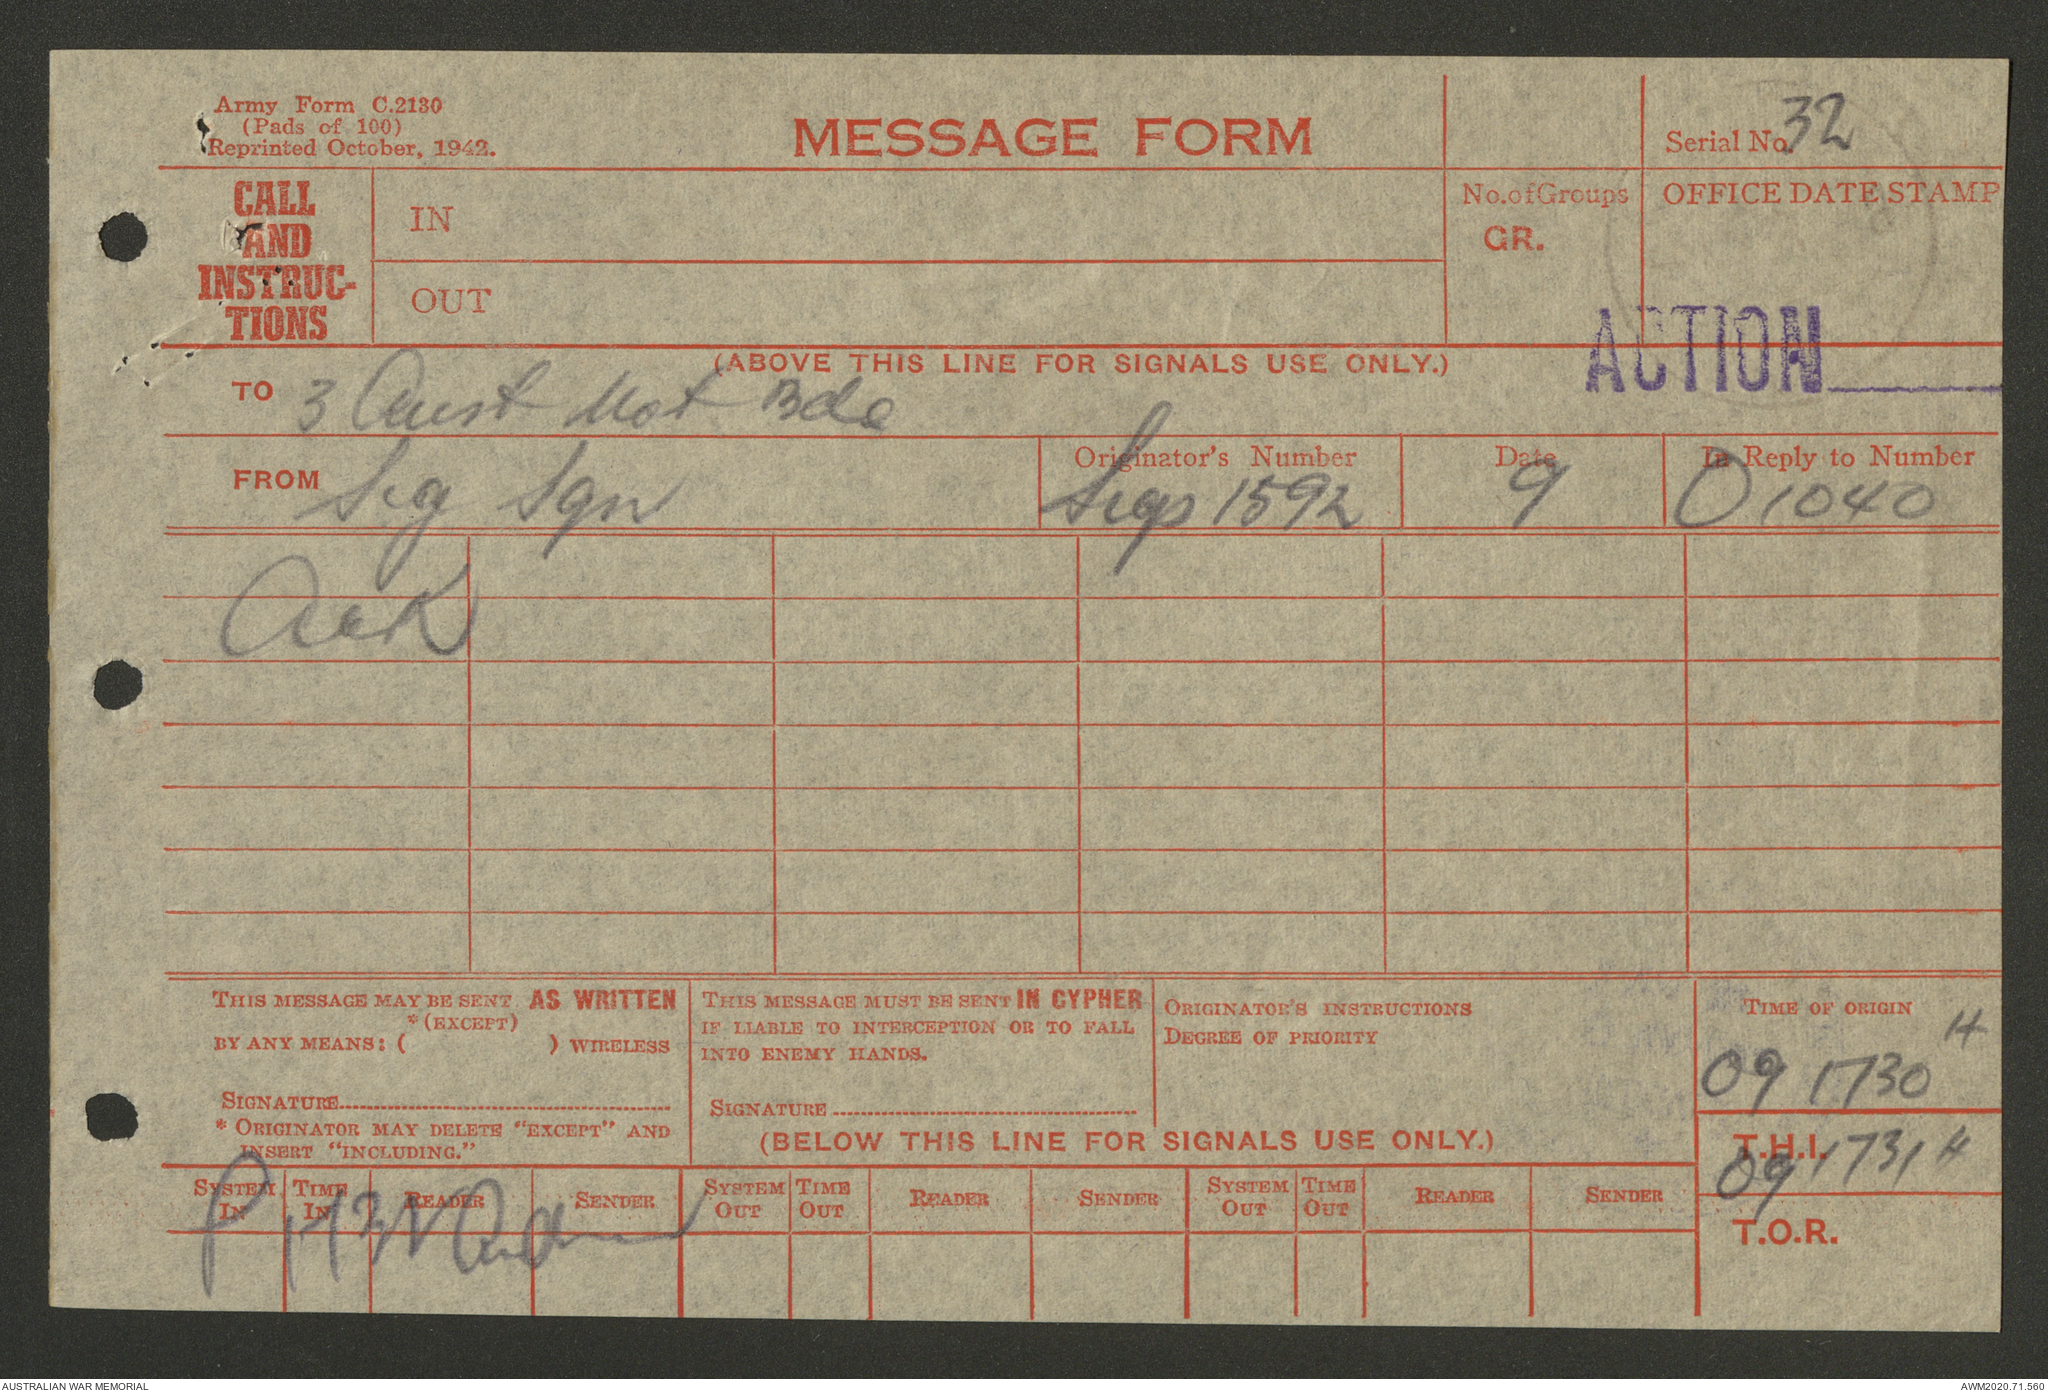 Army Form C.2130
(Pads of 100)
Reprinted October, 1942.
MESSAGE FORM
Serial No. 32
CALL AND INSTRUC-TIONS
IN
OUT
No. of Groups
GR.
OFFICE DATE STAMP
ACTION
(ABOVE THIS LINE FOR SIGNALS USE ONLY.)
TO 3 Aust Mot Bde
FROM Sig Sqn
Originator's Number Sigs 1592
Date 9
In Reply to Number O 1040
Ack
THIS MESSAGE MAY BE SENT AS WRITTEN
*(EXCEPT)
BY ANY MEANS: ( ) WIRELESS
SIGNATURE
* ORIGINATOR MAY DELETE "EXCEPT" AND
INSERT "INCLUDING."
THIS MESSAGE MUST BE SENT IN CYPHER
IF LIABLE TO INTERCEPTION OR TO FALL
INTO ENEMY HANDS.
SIGNATURE
ORIGINATOR'S INSTRUCTIONS
DEGREE OF PRIORITY
(BELOW THIS LINE FOR SIGNALS USE ONLY.)
TIME OF ORIGIN
09 1730 H
T.H.I.
09 1731 H
T.O.R.
SYSTEM IN
TIME IN
READER
SENDER
SYSTEM OUT
TIME OUT
READER
SENDER
SYSTEM OUT
TIME OUT
READER
SENDER
P
AUSTRALIAN WAR MEMORIAL
AWM2020.71.560